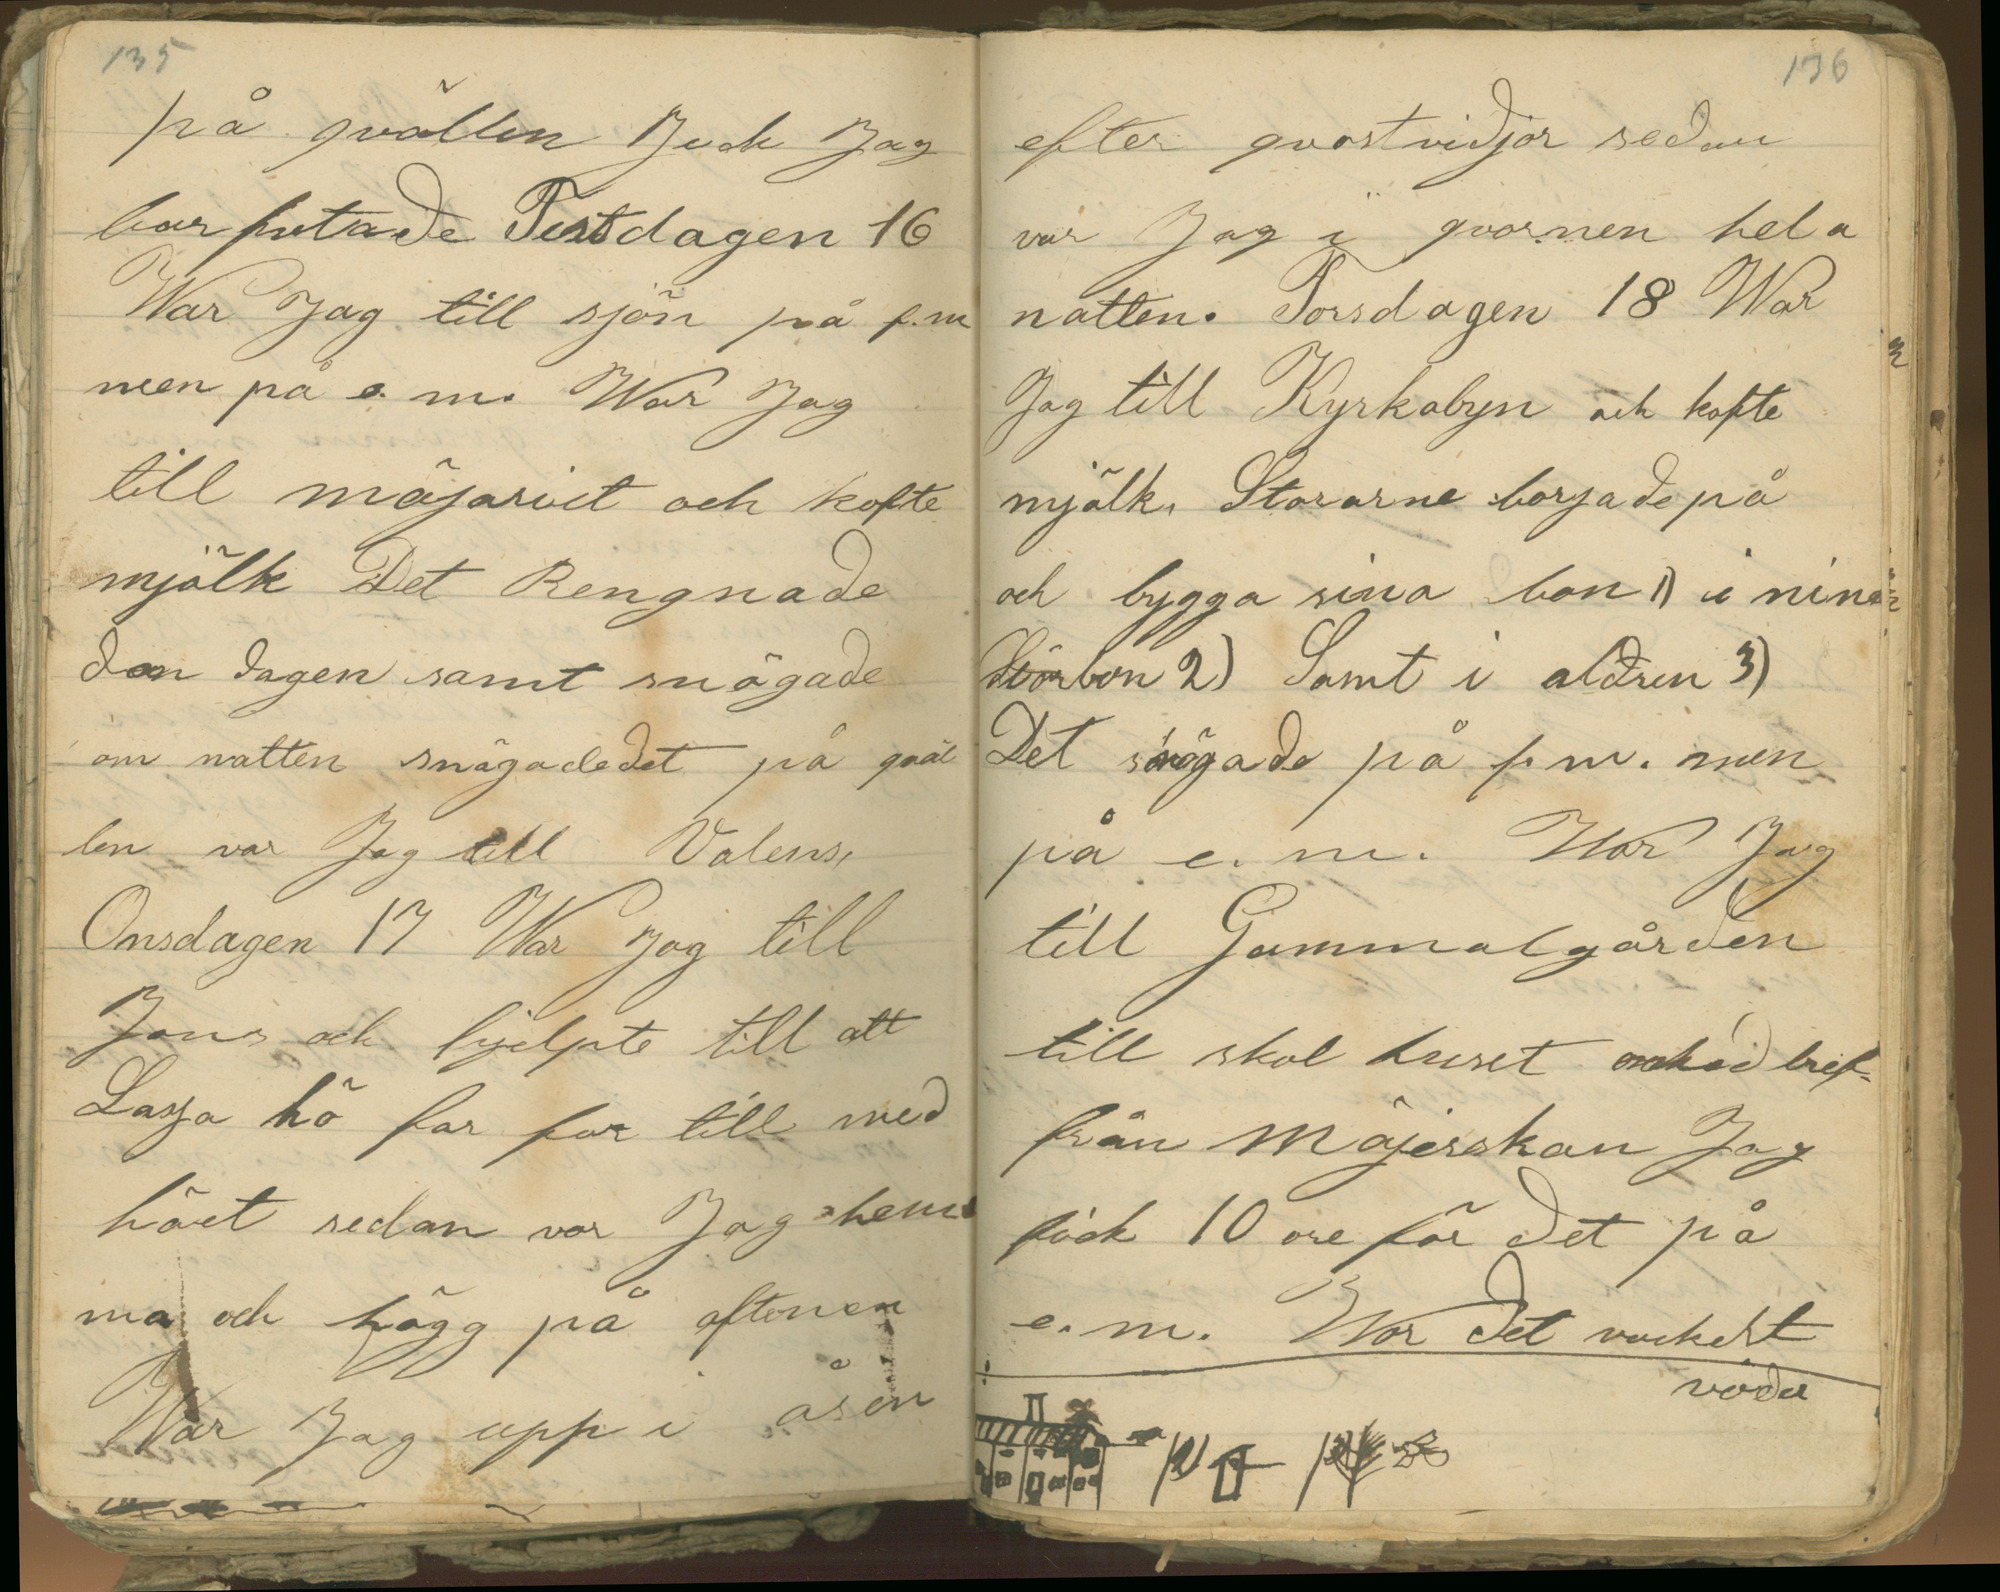 135
på qvällen Jeck Jag
barfotade Tistdagen 16
War Jag till sjön på f.m
men på e. m. War Jag
till mäjariet och kofte
mjölk Det Rengnade
dan dagen samt snögade
om natten snögadedet på qväl
len var Jag till Valens,
Onsdagen 17 War Jag till
Jons och hjelpte till att
Lassa hö far for till med
höet sedan var Jag hem
ma och högg på aftonen
War Jag upp i åsen
136
efter qvostvidjor sedan
var Jag i qvornen hela
natten. Torsdagen 18 War
Jag till Kyrkobyn och kofte
mjölk, Stararne borjade på
och bygga sina bon 1) i
2) Samt i aldren 3)
Det snögade på f. m. men
på e. m. War Jag
till Gammalgården
till skol huset bref
från Mäjerskan Jag
fick 10 ore för det på
e. m. War det vackert
väder
1) 2) 3)